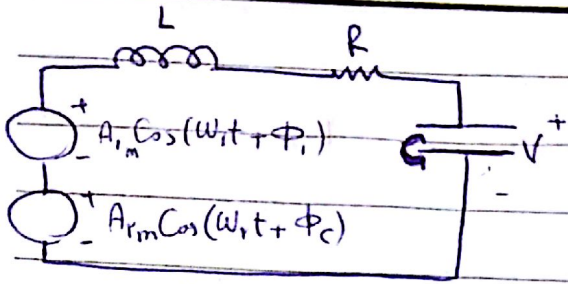 L
R
+
A₁ₘCos(ω₁t + Φ₁)
-
C
V
+
-
+
AᵣₘCos(ωᵣt + Φc)
-